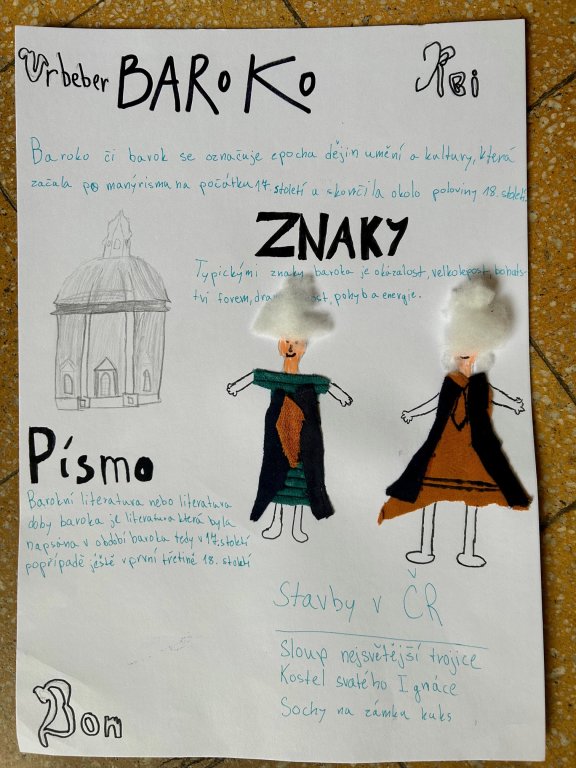 Urbeber BAROKO
Baroko či barok se označuje epocha dějin umění a kultury, která
začala po manýrismu na počátku 17. století a skončila okolo poloviny 18. století.
ZNAKY
Typickými znaky baroka je okázalost, velkolepost, bohats-
tví forem, pohyb a energie.
Písmo
Barokní literatura nebo literatura
doby baroka je literatura která byla
napsána v období baroka tedy v 17. století
popřípadě ještě v první třetině 18. století
Stavby v ČR
Sloup nejsvětější trojice
Kostel svatého Ignáce
Sochy na zámku kuks
Bon